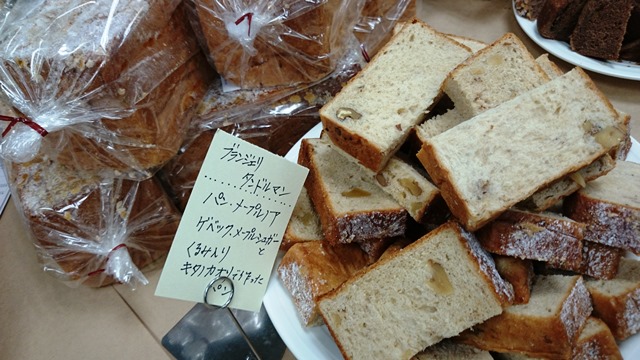 ブランジェリ
タンドルマン
パン・メープルノア
ケベック、メープルシュガーと
くるみ入り
キタノカオリで作った
パン